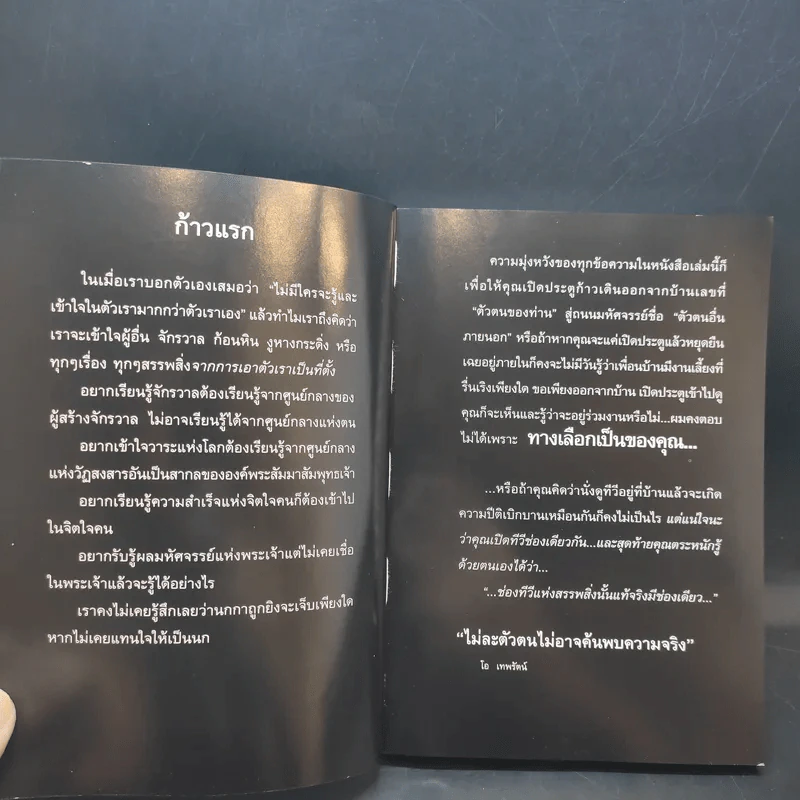 ก้าวแรก
ในเมื่อเราบอกตัวเองเสมอว่า "ไม่มีใครจะรู้และ
เข้าใจในตัวเรามากกว่าตัวเราเอง" แล้วทำไมเราถึงคิดว่า
เราจะเข้าใจผู้อื่น จักรวาล ก้อนหิน งูหางกระดิ่ง หรือ
ทุกๆเรื่อง ทุกๆสรรพสิ่งจากการเอาตัวเราเป็นที่ตั้ง
อยากเรียนรู้จักรวาลต้องเรียนรู้จากศูนย์กลางของ
ผู้สร้างจักรวาล ไม่อาจเรียนรู้ได้จากศูนย์กลางแห่งตน
อยากเข้าใจวาระแห่งโลกต้องเรียนรู้จากศูนย์กลาง
แห่งวัฏสงสารอันเป็นสากลขององค์พระสัมมาสัมพุทธเจ้า
อยากเรียนรู้ความสำเร็จแห่งจิตใจคนก็ต้องเข้าไป
ในจิตใจคน
อยากรับรู้ผลมหัศจรรย์แห่งพระเจ้าแต่ไม่เคยเชื่อ
ในพระเจ้าแล้วจะรู้ได้อย่างไร
เราคงไม่เคยรู้สึกเลยว่านกกาถูกยิงจะเจ็บเพียงใด
หากไม่เคยแทนใจให้เป็นนก
ความมุ่งหวังของทุกข้อความในหนังสือเล่มนี้ก็
เพื่อให้คุณเปิดประตูก้าวเดินออกจากบ้านเลขที่
"ตัวตนของท่าน" สู่ถนนมหัศจรรย์ชื่อ "ตัวตนอื่น
ภายนอก" หรือถ้าหากคุณจะแค่เปิดประตูแล้วหยุดยืน
เฉยอยู่ภายในก็คงจะไม่มีวันรู้ว่าเพื่อนบ้านมีงานเลี้ยงที่
รื่นเริงเพียงใด ขอเพียงออกจากบ้าน เปิดประตูเข้าไปดู
คุณก็จะเห็นและรู้ว่าจะอยู่ร่วมงานหรือไม่...ผมคงตอบ
ไม่ได้เพราะ ทางเลือกเป็นของคุณ...
...หรือถ้าคุณคิดว่านั่งดูทีวีอยู่ที่บ้านแล้วจะเกิด
ความปีติเบิกบานเหมือนกันก็คงไม่เป็นไร แต่แน่ใจนะ
ว่าคุณเปิดทีวีช่องเดียวกัน...และสุดท้ายคุณตระหนักรู้
ด้วยตนเองได้ว่า...
"...ช่องทีวีแห่งสรรพสิ่งนั้นแท้จริงมีช่องเดียว..."
"ไม่ละตัวตนไม่อาจค้นพบความจริง"
โอ เทพรัตน์